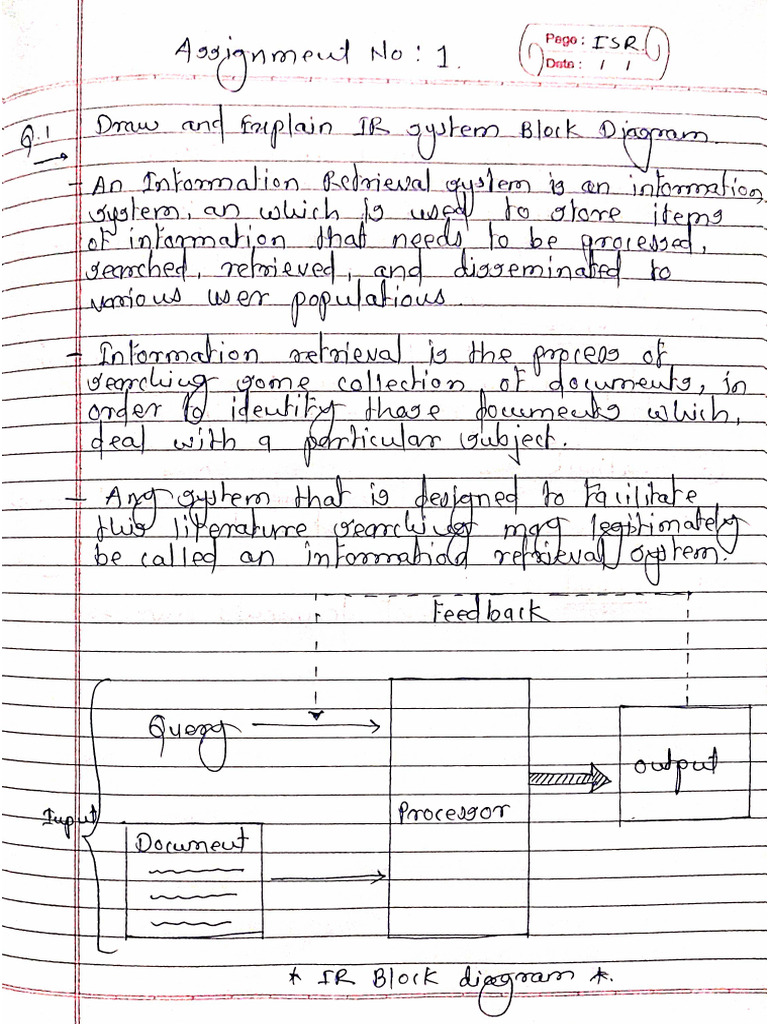 Assignment No: 1.
Page: ISR.
Date: / /
Q.1 Draw and Explain IR system Block Diagram.
- An Information Retrieval system is an information
system, an which is used to store items
of information that needs to be processed,
searched, retrieved, and disseminated to
various user populations.
- Information retrieval is the process of
searching some collection of documents, in
order to identity those documents which,
deal with a particular subject.
- Any system that is designed to facilitate
this literature searching may legitimately
be called an information retrieval system.
Feedback
Query
Output
Processor
Input
Document
* IR Block diagram *.